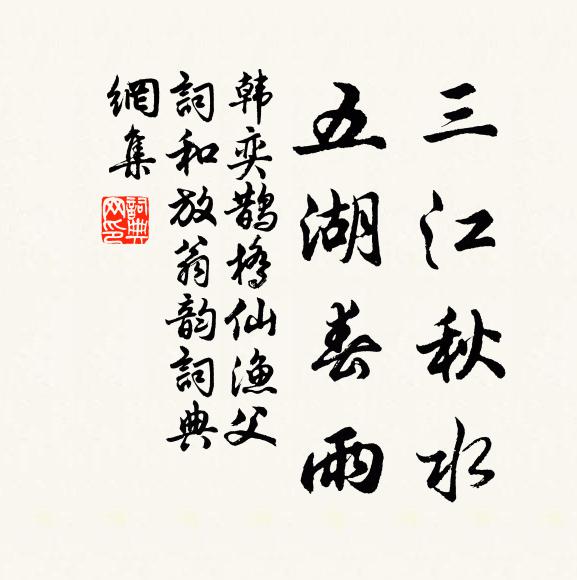 三江秋水
五湖春雨
韩奕鹊橋仙渔父
詞和放翁韵詞典
網集
詞典网印